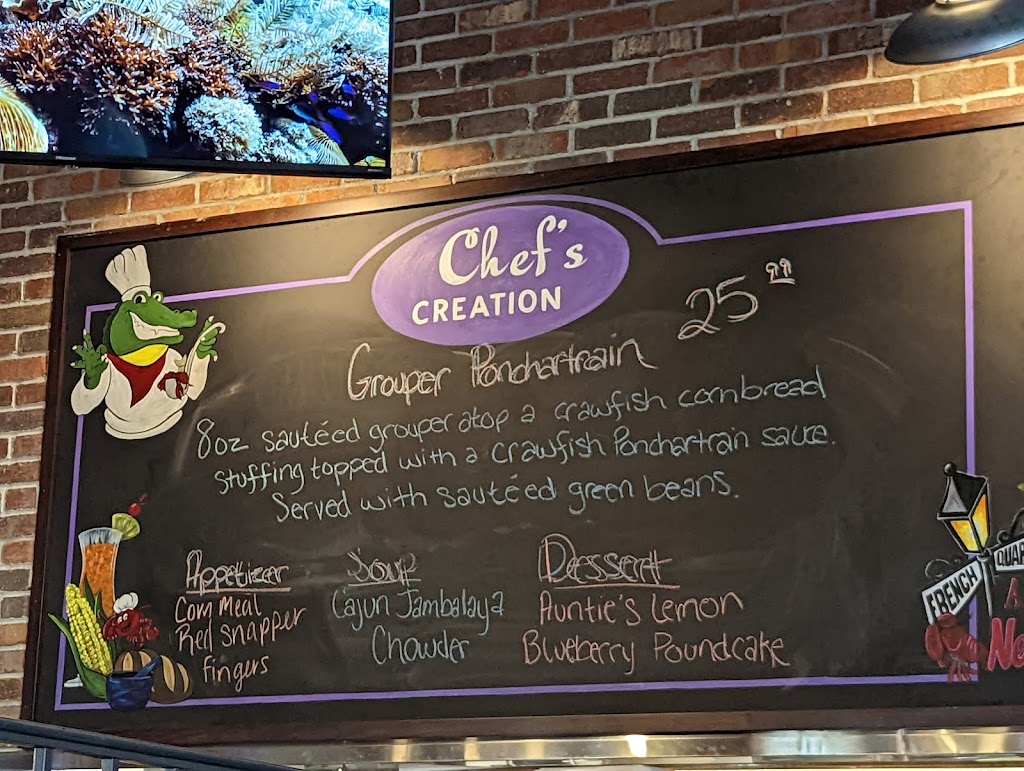 Chef's
CREATION
25 99
Grouper Ponchartrain
8oz sautéed grouper atop a crawfish cornbread
stuffing topped with a crawfish Ponchartrain sauce.
Served with sautéed green beans.
Appetizer
Corn Meal
Red Snapper
fingers
Soup
Cajun Jambalaya
Chowder
Dessert
Auntie's Lemon
Blueberry Poundcake
FRENCH
QUAR
A
Ne